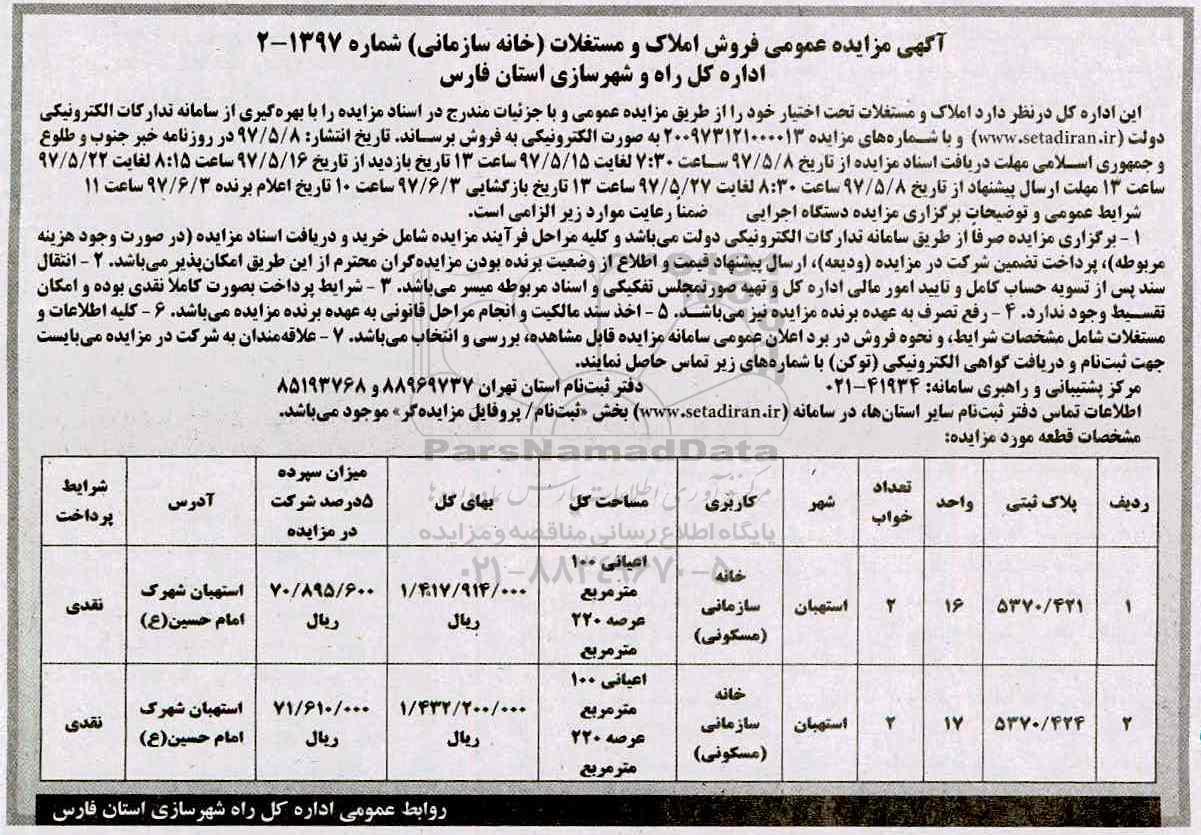 آگهی مزایده عمومی فروش املاک و مستغلات (خانه سازمانی) شماره ۱۳۹۷-۲
اداره کل راه و شهرسازی استان فارس
این اداره کل درنظر دارد املاک و مستغلات تحت اختیار خود را از طریق مزایده عمومی و با جزئیات مندرج در اسناد مزایده را با بهره‌گیری از سامانه تدارکات الکترونیکی
دولت (www.setadiran.ir) و با شماره‌های مزایده ۲۰۰۹۷۳۱۲۱۰۰۰۰۱۳ به صورت الکترونیکی به فروش برساند. تاریخ انتشار: ۹۷/۵/۸ در روزنامه خبر جنوب و طلوع
و جمهوری اسلامی مهلت دریافت اسناد مزایده از تاریخ ۹۷/۵/۸ ساعت ۷:۳۰ لغایت ۹۷/۵/۱۵ ساعت ۱۳ تاریخ بازدید از تاریخ ۹۷/۵/۱۶ ساعت ۸:۱۵ لغایت ۹۷/۵/۲۲
ساعت ۱۳ مهلت ارسال پیشنهاد از تاریخ ۹۷/۵/۸ ساعت ۸:۳۰ لغایت ۹۷/۵/۲۷ ساعت ۱۳ تاریخ بازگشایی ۹۷/۶/۳ ساعت ۱۰ تاریخ اعلام برنده ۹۷/۶/۳ ساعت ۱۱
شرایط عمومی و توضیحات برگزاری مزایده دستگاه اجرایی ضمناً رعایت موارد زیر الزامی است.
۱- برگزاری مزایده صرفاً از طریق سامانه تدارکات الکترونیکی دولت می‌باشد و کلیه مراحل فرآیند مزایده شامل خرید و دریافت اسناد مزایده (در صورت وجود هزینه
مربوطه)، پرداخت تضمین شرکت در مزایده (ودیعه)، ارسال پیشنهاد قیمت و اطلاع از وضعیت برنده بودن مزایده‌گران محترم از این طریق امکان‌پذیر می‌باشد. ۲- انتقال
سند پس از تسویه حساب کامل و تایید امور مالی اداره کل و تهیه صورتمجلس تفکیکی و اسناد مربوطه میسر می‌باشد. ۳- شرایط پرداخت بصورت کاملاً نقدی بوده و امکان
تقسیط وجود ندارد. ۴- رفع تصرف به عهده برنده مزایده نیز می‌باشد. ۵- اخذ سند مالکیت و انجام مراحل قانونی به عهده برنده مزایده می‌باشد. ۶- کلیه اطلاعات و
مستغلات شامل مشخصات شرایط، و نحوه فروش در برد اعلان عمومی سامانه مزایده قابل مشاهده، بررسی و انتخاب می‌باشد. ۷- علاقه‌مندان به شرکت در مزایده می‌بایست
جهت ثبت‌نام و دریافت گواهی الکترونیکی (توکن) با شماره‌های زیر تماس حاصل نمایند.
مرکز پشتیبانی و راهبری سامانه: ۴۱۹۳۴-۰۲۱ دفتر ثبت‌نام استان تهران ۸۸۹۶۹۷۳۷ و ۸۵۱۹۳۷۶۸
اطلاعات تماس دفتر ثبت‌نام سایر استان‌ها، در سامانه (www.setadiran.ir) بخش «ثبت‌نام/ پروفایل مزایده‌گر» موجود می‌باشد.
مشخصات قطعه مورد مزایده:
ParsNamadData
پایگاه اطلاع رسانی مناقصه و مزایده
۰۲۱-۸۸۳۴۹۶۷۰-۵
ردیف پلاک ثبتی واحد تعداد خواب شهر کاربری مساحت کل بهای کل میزان سپرده ۵درصد شرکت در مزایده آدرس شرایط پرداخت
۱ ۵۳۷۰/۴۲۱ ۱۶ ۲ استهبان خانه سازمانی (مسکونی) اعیانی ۱۰۰ مترمربع عرصه ۲۲۰ مترمربع ۱/۴۱۷/۹۱۴/۰۰۰ ریال ۷۰/۸۹۵/۶۰۰ ریال استهبان شهرک امام حسین(ع) نقدی
۲ ۵۳۷۰/۴۲۴ ۱۷ ۲ استهبان خانه سازمانی (مسکونی) اعیانی ۱۰۰ مترمربع عرصه ۲۲۰ مترمربع ۱/۴۳۲/۲۰۰/۰۰۰ ریال ۷۱/۶۱۰/۰۰۰ ریال استهبان شهرک امام حسین(ع) نقدی
روابط عمومی اداره کل راه شهرسازی استان فارس